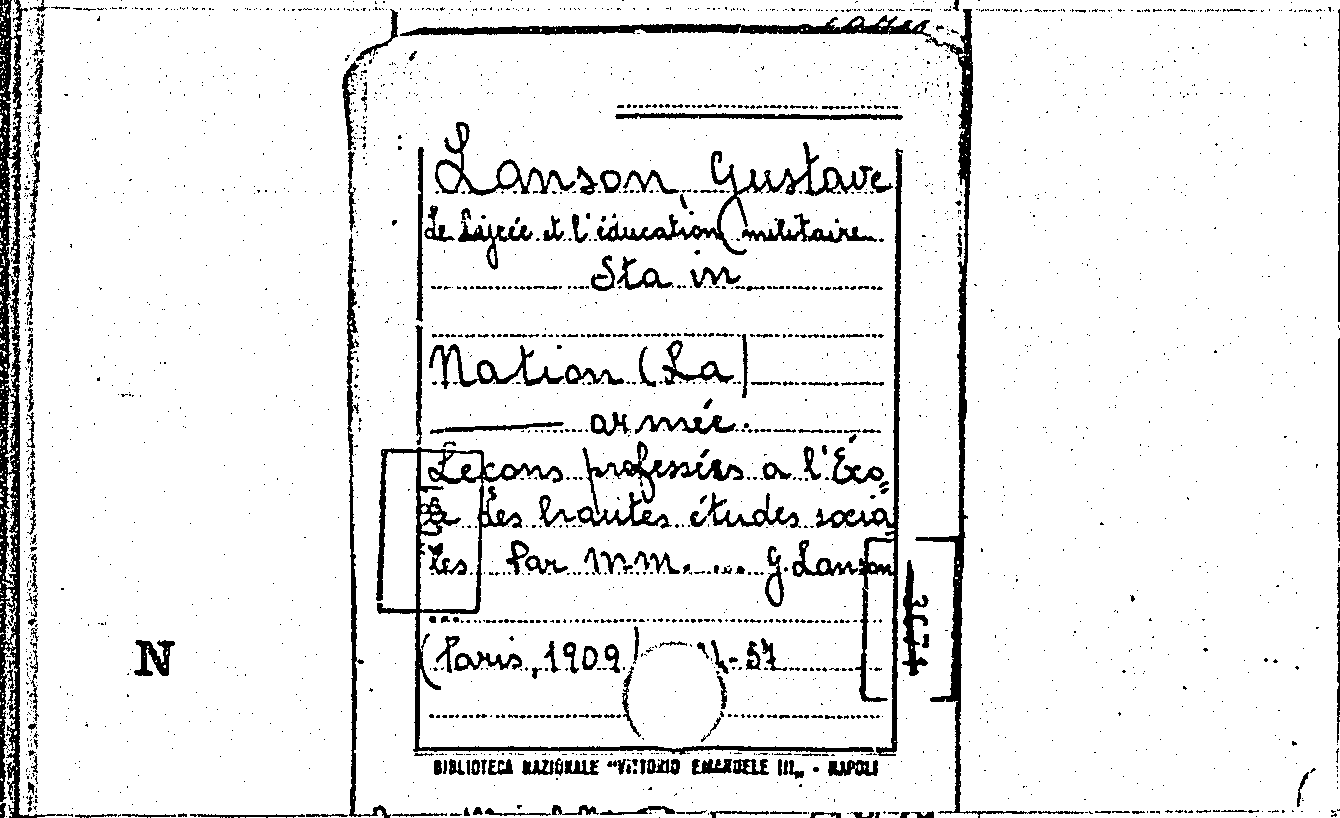 Lanson Gustave
Le Lijcée et l'éducation militaire
Sta in
Nation (La)
armée.
Leçons professées a l'Éco„
le des hautes études socia„
les Par MM. ... G. Lanson
...
(Paris, 1909) -57
N
BIBLIOTECA NAZIONALE "VITTORIO EMANUELE III„ - NAPOLI